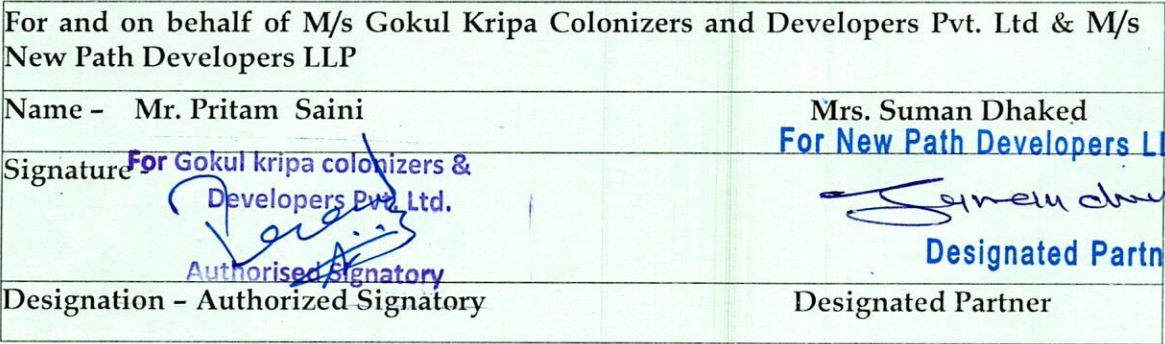 For and on behalf of M/s Gokul Kripa Colonizers and Developers Pvt. Ltd & M/s
New Path Developers LLP
Name - Mr. Pritam Saini Mrs. Suman Dhaked
For New Path Developers LL
Signature For Gokul kripa colonizers &
Developers Pvt. Ltd.
Authorised Signatory
Designated Partn
Designation – Authorized Signatory Designated Partner